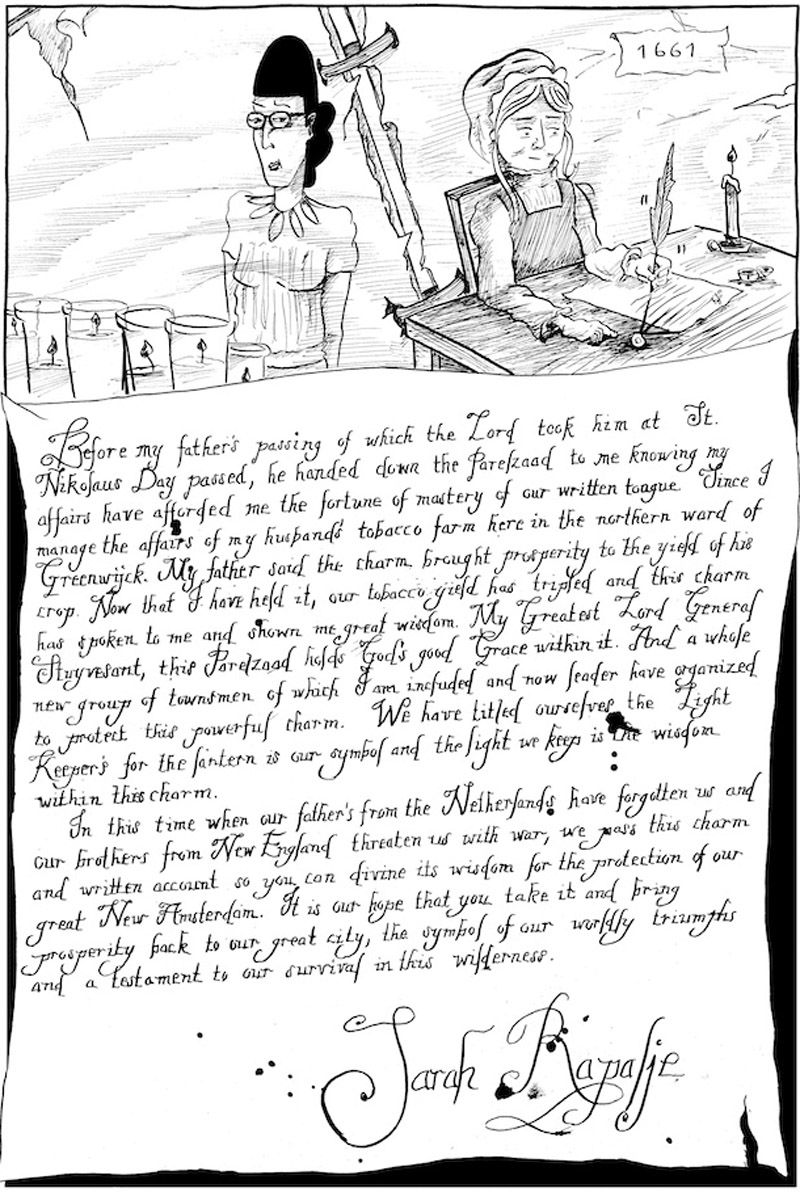 1661
Before my father's passing of which the Lord took him at St.
Nikolaus Day passed, he handed down the Parelzaad to me knowing my
affairs have afforded me the fortune of mastery of our written tongue. Since I
manage the affairs of my husbands' tobacco farm here in the northern ward of
Greenwijck. My father said the charm brought prosperity to the yield of his
crop. Now that I have held it, our tobacco yield has tripled and this charm
has spoken to me and shown me great wisdom. My Greatest Lord General
Stuyvesant, this Parelzaad holds God's good Grace within it. And a whole
new group of townsmen of which I am included and now leader have organized
to protect this powerful charm. We have titled ourselves the Light
Keeper's for the lantern is our symbol and the light we keep is the wisdom
within this charm.
In this time when our father's from the Netherlands have forgotten us and
our brothers from New England threaten us with war, we pass this charm
and written account so you can divine its wisdom for the protection of our
great New Amsterdam. It is our hope that you take it and bring
prosperity back to our great city, the symbol of our worldly triumphs
and a testament to our survival in this wilderness.
Sarah Rapalje